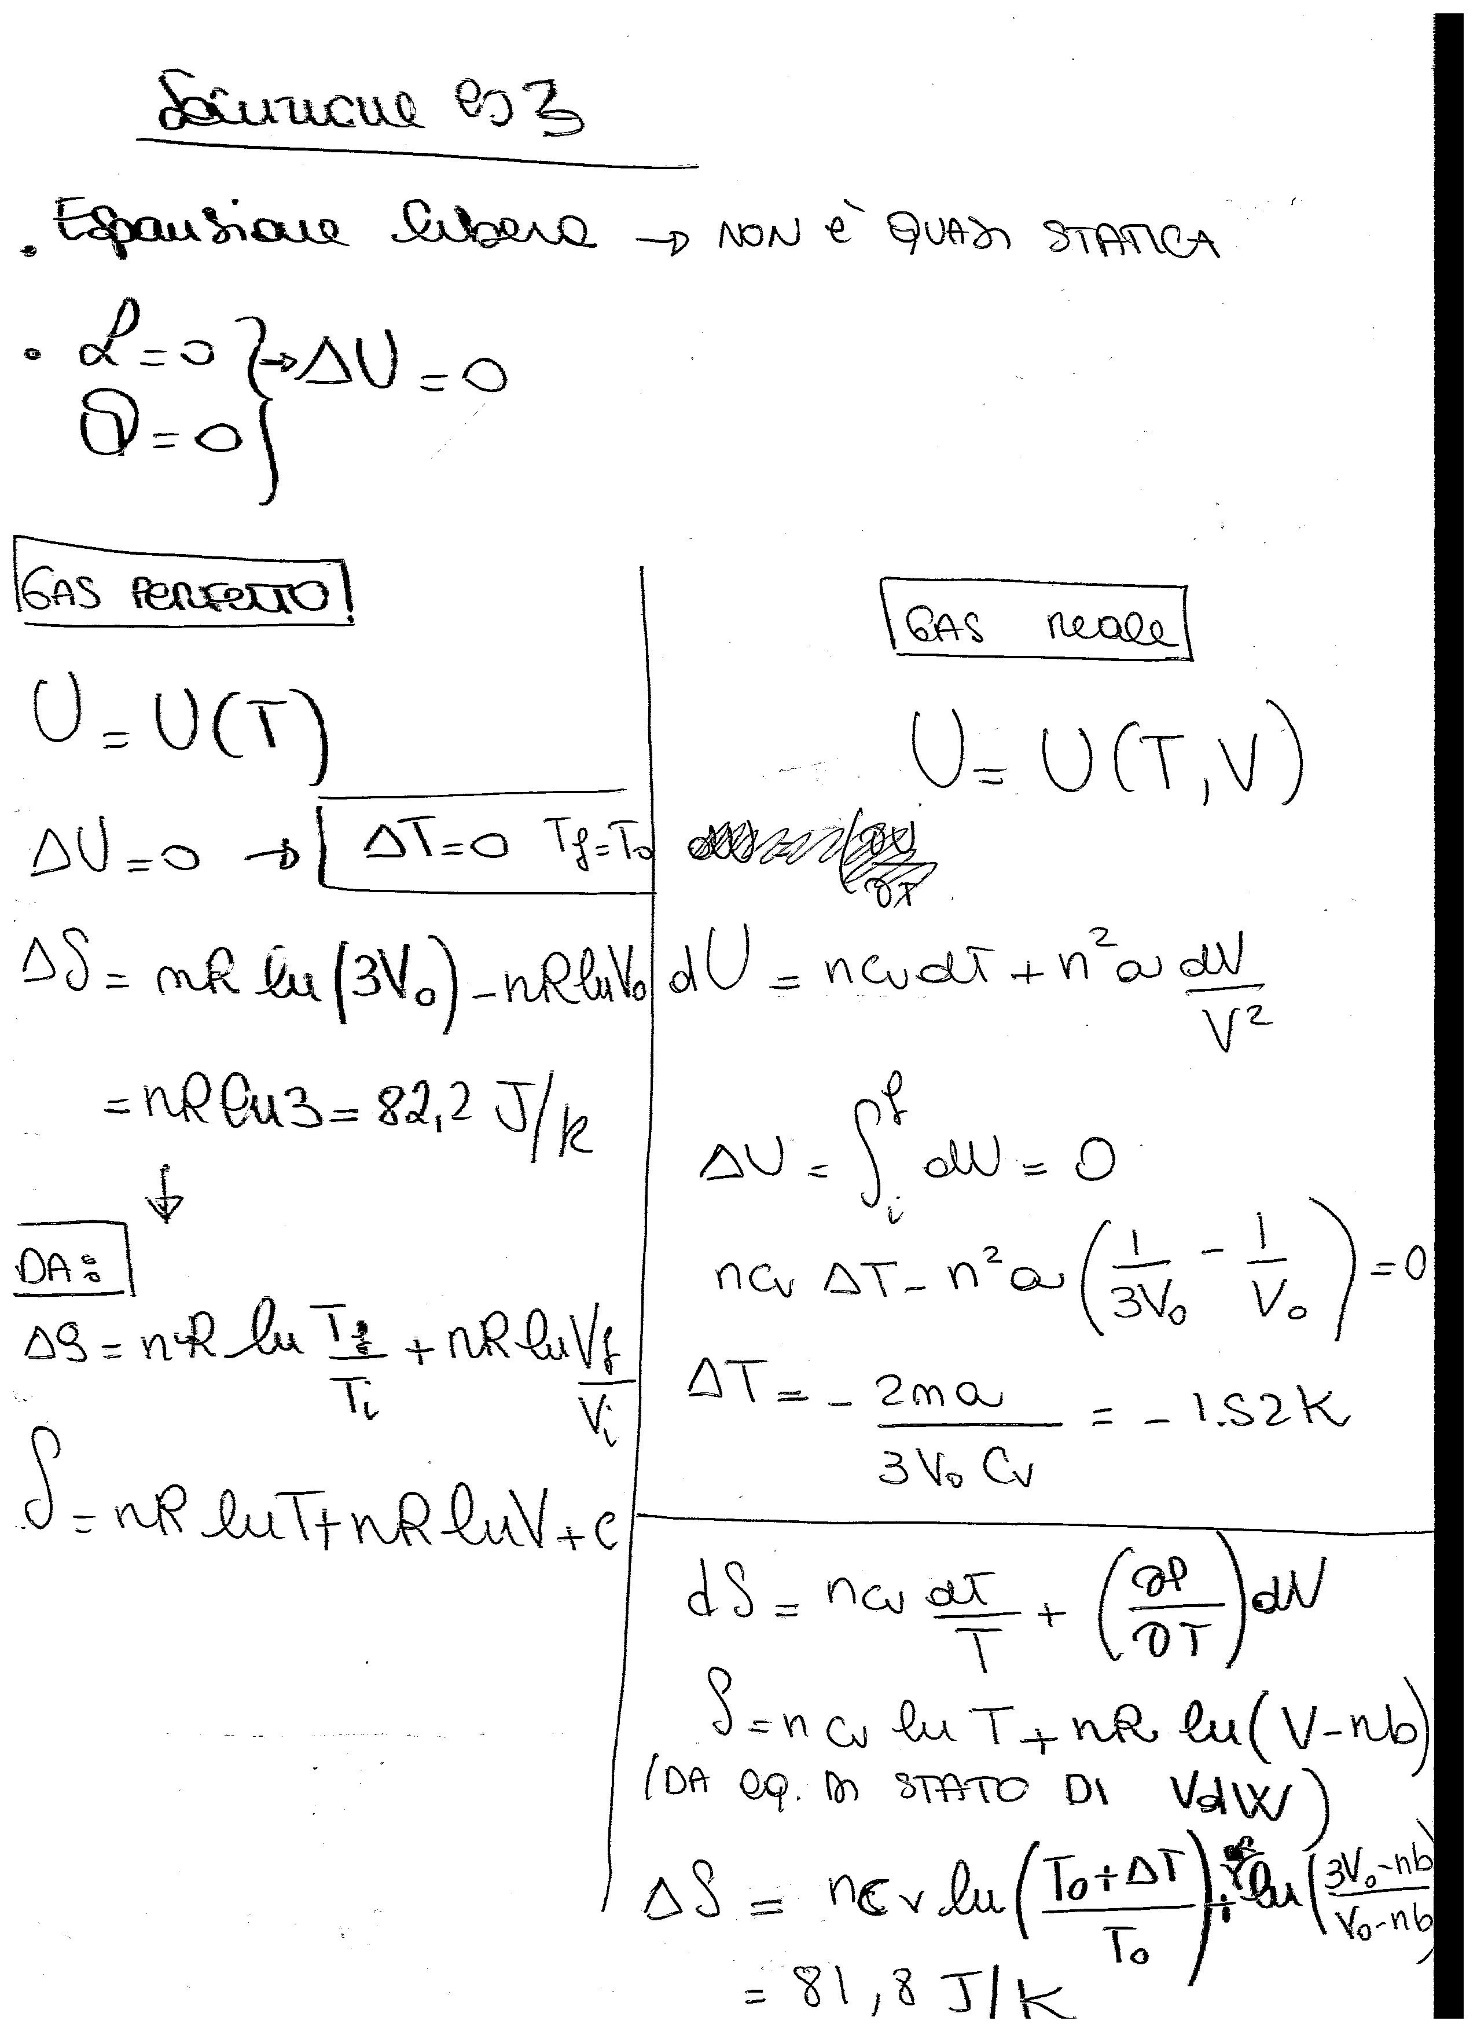 Soluzione es 3
• Espansione libera → NON è QUASI STATICA
• L = 0 } → ΔU = 0
Q = 0
GAS PERFETTO
U = U(T)
ΔU = 0 → ΔT = 0 Tf = To
ΔS = nR ln(3Vo) - nR ln Vo
= nR ln 3 = 82,2 J/K
↓
DA:
ΔS = nR ln Tf/Ti + nR ln Vf/Vi
S = nR ln T + nR ln V + c
GAS reale
U = U(T,V)
dU = ncv dT + n² a dV/V²
ΔU = ∫ᵢᶠ dU = 0
ncv ΔT - n² a (1/3Vo - 1/Vo) = 0
ΔT = - 2na/3Vo Cv = - 1.52 K
dS = ncv dT/T + (∂P/∂T) dV
S = n cv ln T + nR ln (V-nb)
(DA eq. DI STATO DI VdW)
ΔS = ncv ln (To+ΔT/To) + ln (3Vo-nb/Vo-nb)
= 81,8 J/K